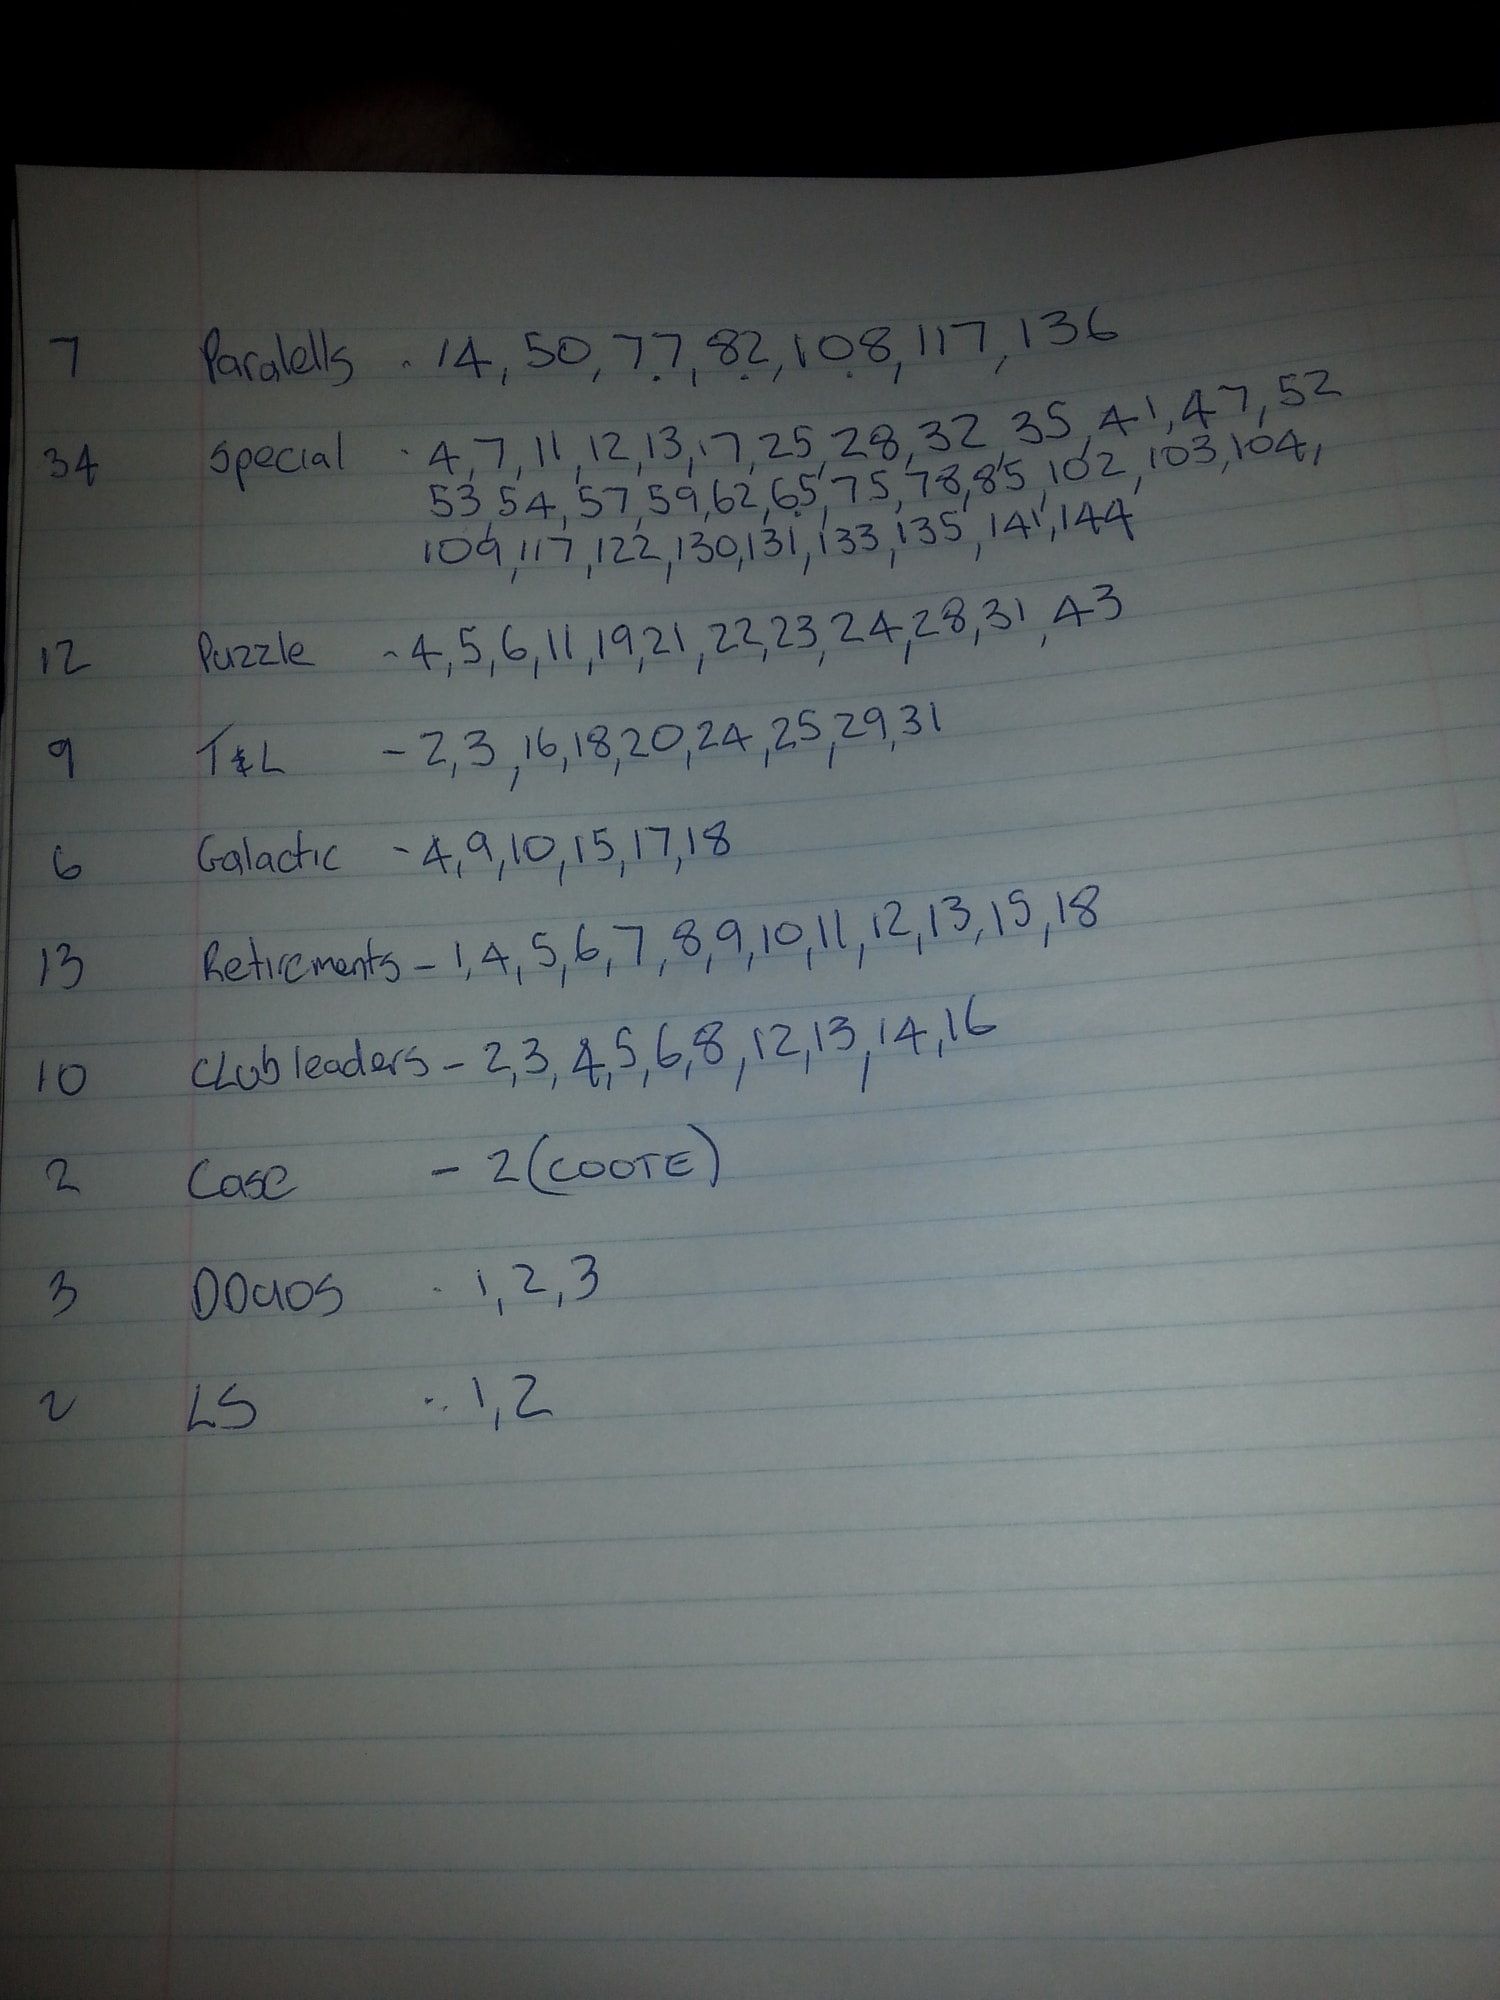 7 Paralells - 14, 50, 77, 82, 108, 117, 136
34 Special - 4, 7, 11, 12, 13, 17, 25, 28, 32, 35, 41, 47, 52
53, 54, 57, 59, 62, 65, 75, 78, 85, 102, 103, 104,
109, 117, 122, 130, 131, 133, 135, 141, 144
12 Puzzle - 4, 5, 6, 11, 19, 21, 22, 23, 24, 28, 31, 43
9 T&L - 2, 3, 16, 18, 20, 24, 25, 29, 31
6 Galactic - 4, 9, 10, 15, 17, 18
13 Retirements - 1, 4, 5, 6, 7, 8, 9, 10, 11, 12, 13, 15, 18
10 Club leaders - 2, 3, 4, 5, 6, 8, 12, 13, 14, 16
2 Case - 2 (COOTE)
3 - 1, 2, 3
2 LS - 1, 2